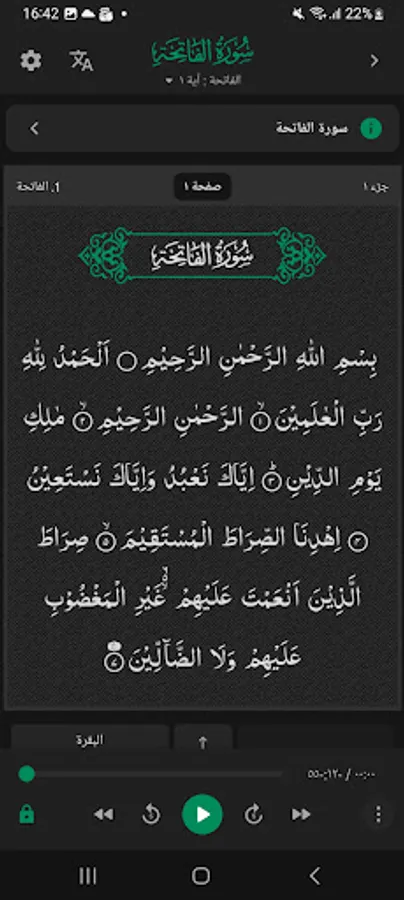 16:42
22%
سُوْرَةُ الْفَاتِحَةِ
الفاتحة : أية ١
سورة الفاتحة
جزء ١
صفحة ١
1. الفاتحة
سُوْرَةُ الْفَاتِحَةِ
بِسْمِ اللهِ الرَّحْمٰنِ الرَّحِيْمِ ۝ اَلْحَمْدُ لِلّٰهِ
رَبِّ الْعٰلَمِيْنَ ۙ‏﴿۱﴾ الرَّحْمٰنِ الرَّحِيْمِ ۙ‏﴿۲﴾ مٰلِكِ
يَوْمِ الدِّيْنِ ؕ‏﴿۳﴾ اِيَّاكَ نَعْبُدُ وَاِيَّاكَ نَسْتَعِيْنُ
﴿۴﴾ اِهْدِنَا الصِّرَاطَ الْمُسْتَقِيْمَ ۙ‏﴿۵﴾ صِرَاطَ
الَّذِيْنَ اَنْعَمْتَ عَلَيْهِمْ ۙ۬ غَيْرِ الْمَغْضُوْبِ
عَلَيْهِمْ وَلَا الضَّآلِّيْنَ
البقرة
٠٠:٠٠ /